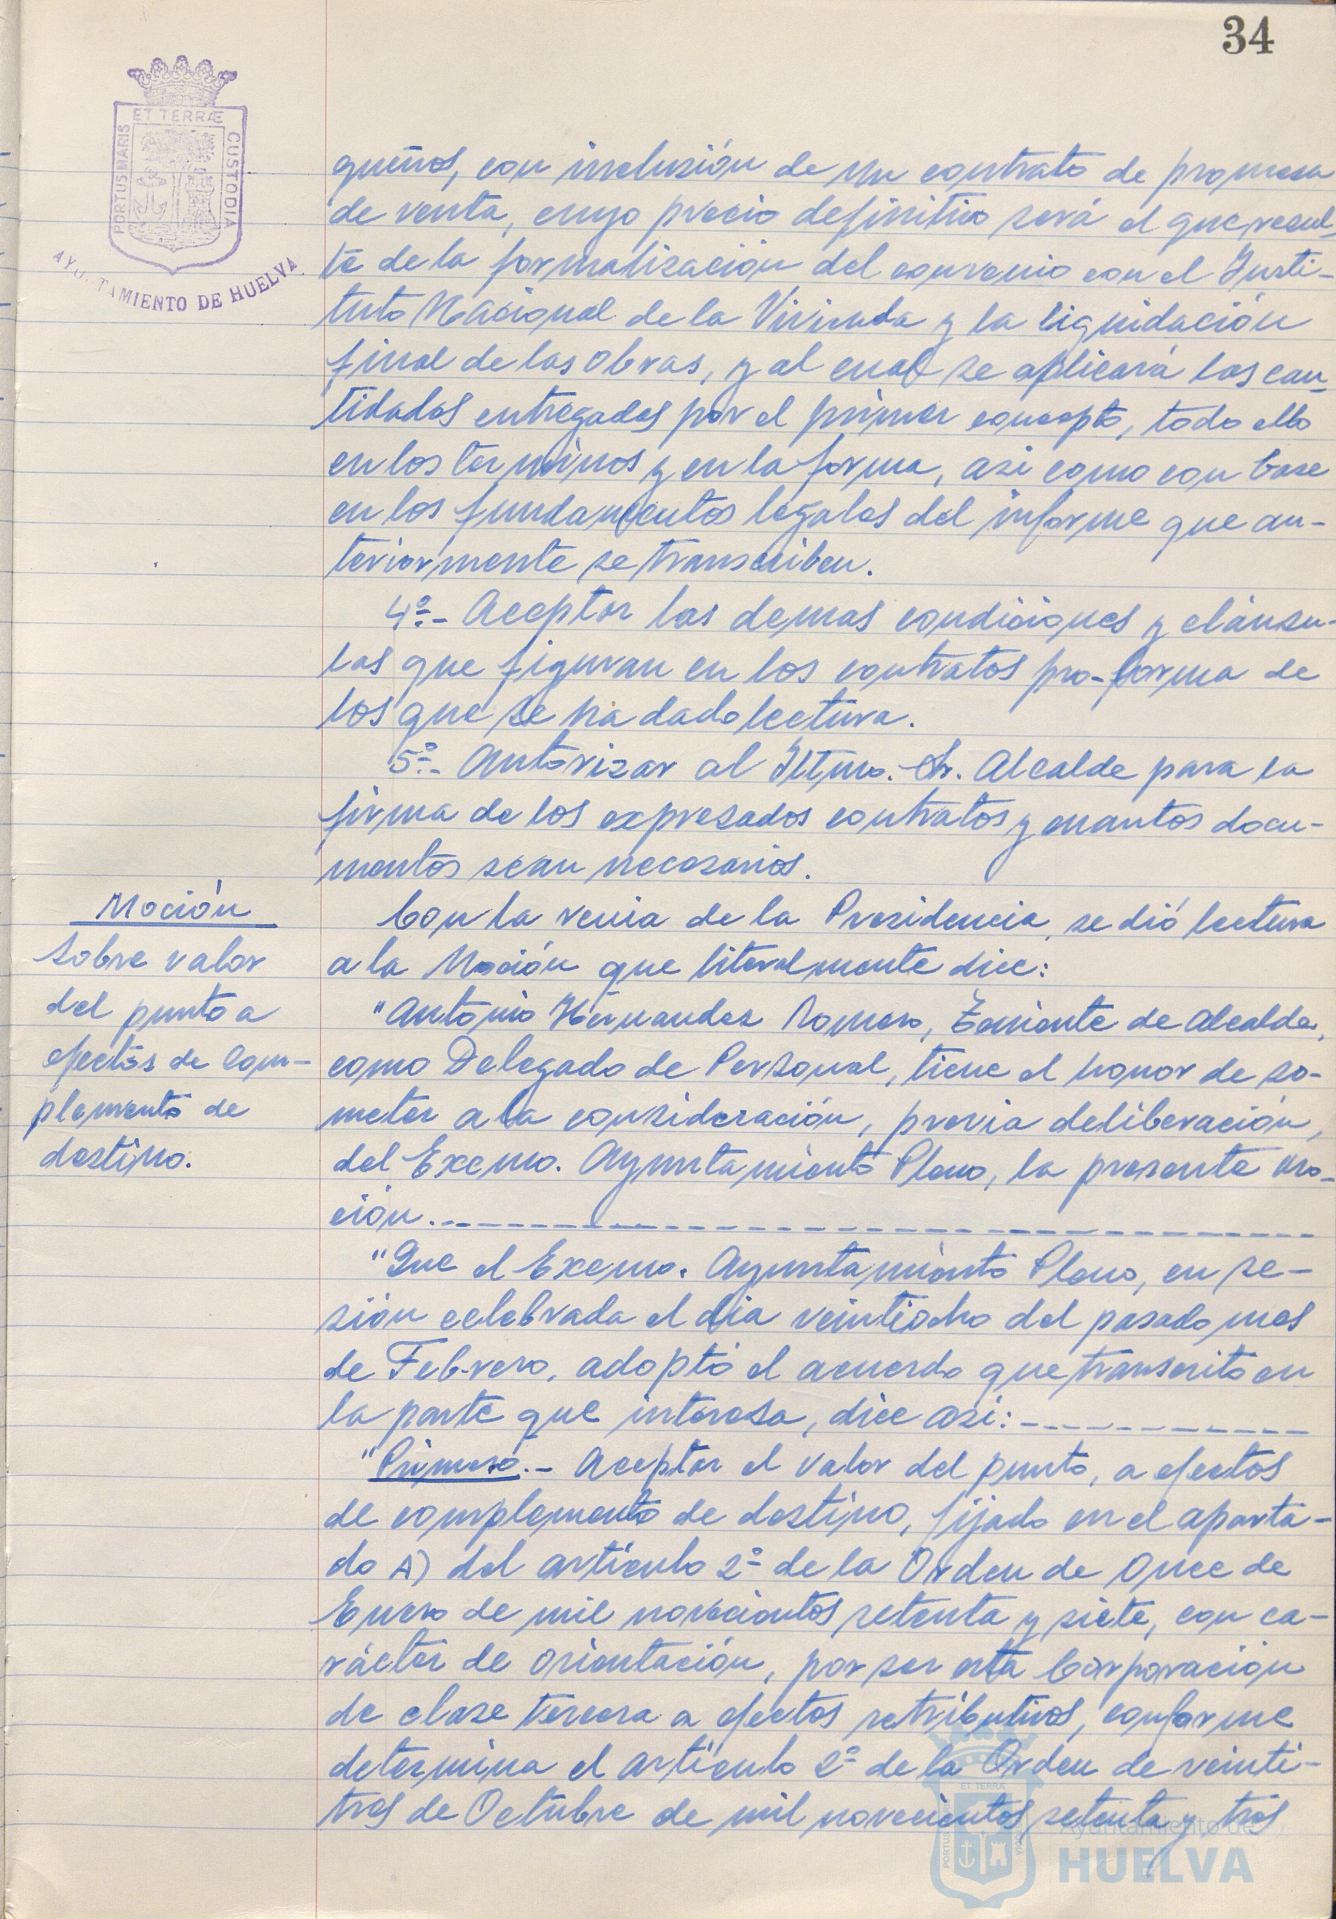 34
ET TERRÆ
PORTUS MARIS
CUSTODIA
AYUNTAMIENTO DE HUELVA
queños, con inclusión de un contrato de promesa
de venta, cuyo precio definitivo será el que resul-
te de la formalización del convenio con el Insti-
tuto Nacional de la Vivienda y la liquidación
final de las obras, y al cual se aplicará las can-
tidades entregadas por el primer concepto, todo ello
en los terminos y en la forma, asi como con base
en los fundamentos legales del informe que an-
teriormente se transcriben.
4º.- Aceptar las demas condiciones y cláusu-
las que figuran en los contratos pro-forma de
los que se ha dado lectura.
5º.- Autorizar al Iltmo. Sr. Alcalde para la
firma de los expresados contratos y cuantos docu-
mentos sean necesarios.
Moción
Sobre valor
del punto a
efectos de Com-
plemento de
destino.
Con la venia de la Presidencia, se dió lectura
a la Moción que literalmente dice:
"Antonio Hernandez Romero, Teniente de Alcalde,
como Delegado de Personal, tiene el honor de so-
meter a la consideración, previa deliberación,
del Excmo. Ayuntamiento Pleno, la presente mo-
ción.
"Que el Excmo. Ayuntamiento Pleno, en se-
sión celebrada el dia veintiocho del pasado mes
de Febrero, adoptó el acuerdo que transcrito en
la parte que interesa, dice asi:
"Primero.- Aceptar el valor del punto, a efectos
de complemento de destino, fijado en el aparta-
do A) del articulo 2º de la Orden de Once de
Enero de mil novecientos setenta y siete, con ca-
rácter de orientación, por ser esta Corporación
de clase tercera a efectos retributivos, conforme
determina el articulo 2º de la Orden de veinti-
tres de Octubre de mil novecientos setenta y tres
Ayuntamiento de
HUELVA